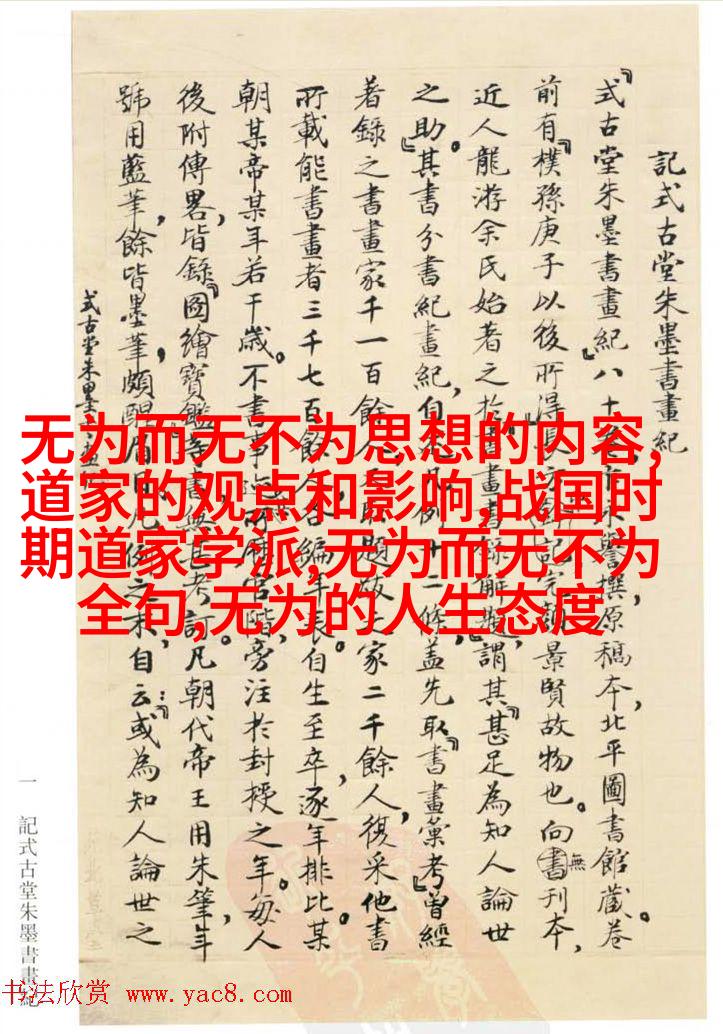 記式古堂朱墨書畫紀
『式古堂朱墨書畫紀』八十卷
譽撰原稿本，北平圖書館藏。卷
前有『樸孫庚子以後所得
景賢故物也。向無刊本，
近人龍游余氏始著之於
謂其『甚足為知人論世
之助』。其書分書紀畫紀，
例十二條，蓋先取『書畫彙考』曾經
著錄之書畫家千一百餘人
家二千餘人，復采他書
所載能書畫者三千七百餘人
編年表。自生至卒，逐年排比。某
朝某帝某年若干歲。不書事
階，旁注於封授之年。每人
後附傳畧，皆錄『圖繪寶鑑』等書
考訂。凡朝代帝王用朱筆，年
號用藍筆，餘皆墨筆，頗醒眉目。
自云：或為知人論世之
式古堂朱墨書畫紀
无为而无不为思想的内容,
道家的观点和影响,战国时
期道家学派,无为而无不为
全句,无为的人生态度
一
記式古堂朱墨書畫紀
书法欣赏 www.yac8.com